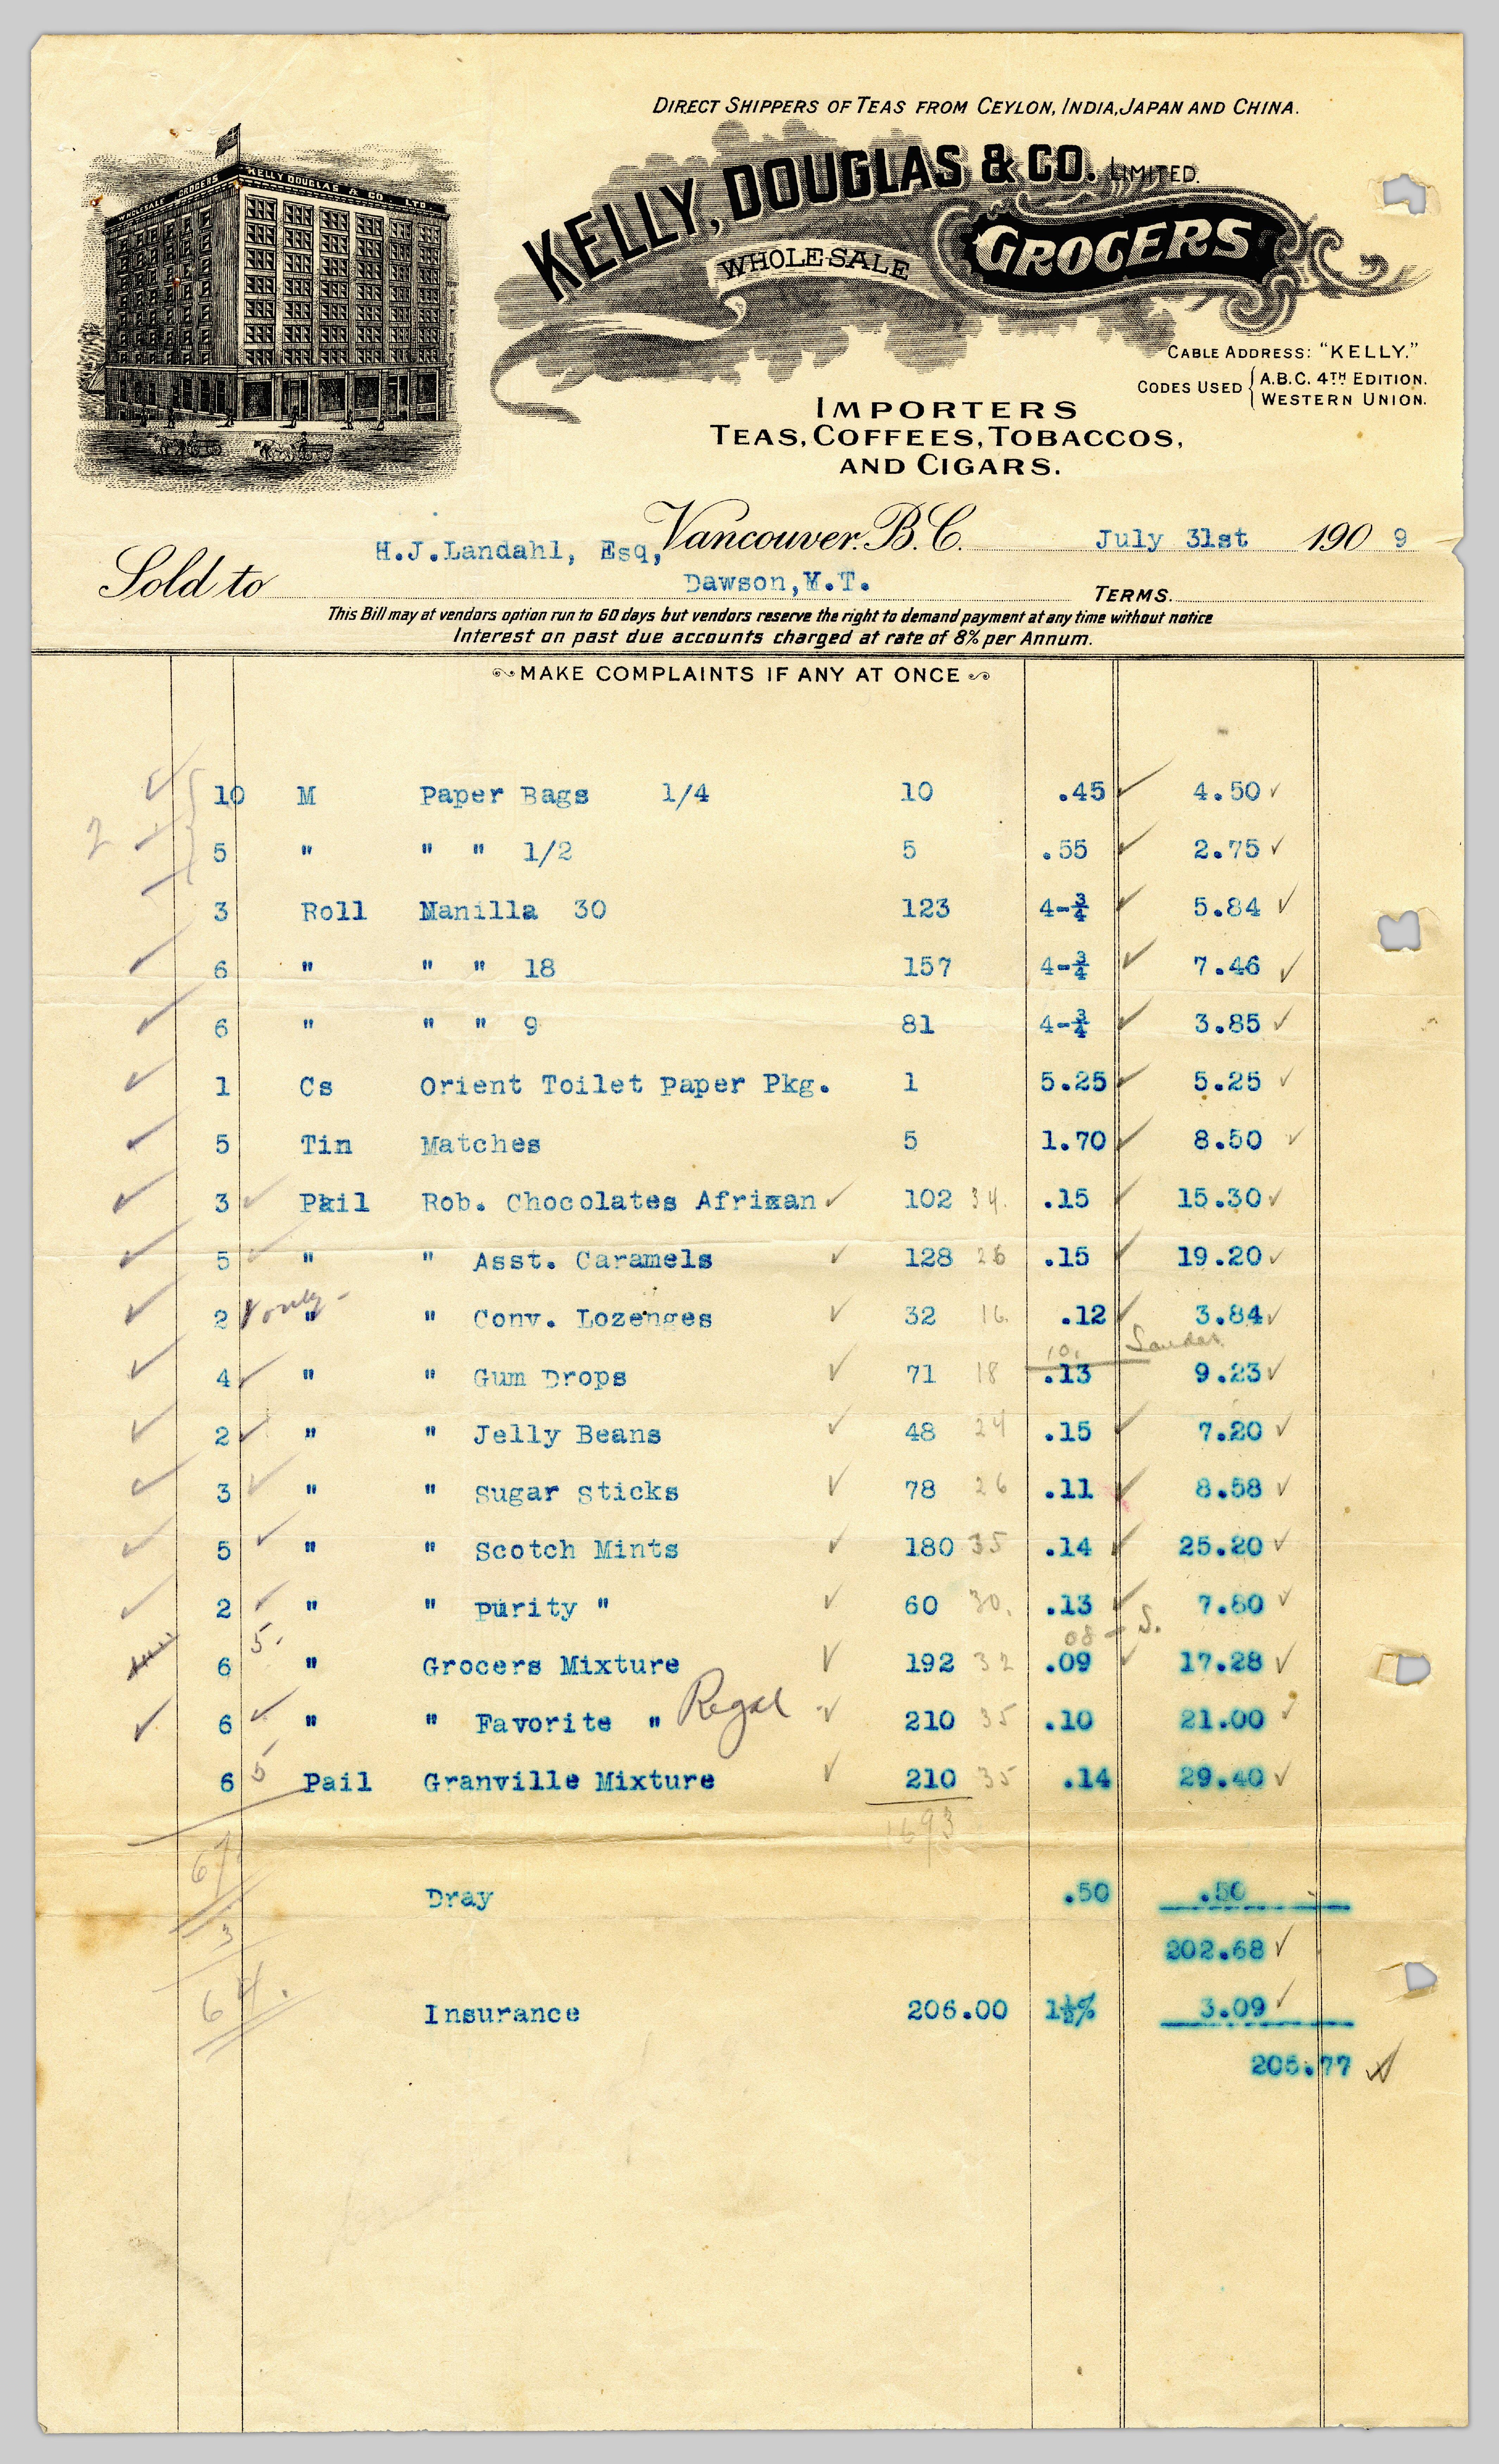 DIRECT SHIPPERS OF TEAS FROM CEYLON, INDIA, JAPAN AND CHINA.
WHOLESALE GROCERS KELLY DOUGLAS & CO. LTD.
KELLY, DOUGLAS & CO. LIMITED.
WHOLESALE GROCERS
CABLE ADDRESS: "KELLY."
CODES USED { A.B.C. 4TH EDITION.
WESTERN UNION.
IMPORTERS
TEAS, COFFEES, TOBACCOS,
AND CIGARS.
Vancouver. B.C. July 31st 190 9
Sold to H.J.Landahl, Esq,
Dawson,Y.T. TERMS.
This Bill may at vendors option run to 60 days but vendors reserve the right to demand payment at any time without notice
Interest on past due accounts charged at rate of 8% per Annum.
MAKE COMPLAINTS IF ANY AT ONCE
10 M Paper Bags 1/4 10 .45 ✓ 4.50 ✓
2 5 " " " 1/2 5 .55 ✓ 2.75 ✓
3 Roll Manilla 30 123 4-¾ ✓ 5.84 ✓
✓ 6 " " " 18 157 4-¾ ✓ 7.46 ✓
✓ 6 " " " 9 81 4-¾ ✓ 3.85 ✓
✓ 1 Cs Orient Toilet Paper Pkg. 1 5.25 ✓ 5.25 ✓
✓ 5 Tin Matches 5 1.70 ✓ 8.50 ✓
✓ 3 ✓ Pail Rob. Chocolates Afrixan ✓ 102 34. .15 ✓ 15.30 ✓
✓ 5 ✓ " " Asst. Caramels ✓ 128 26 .15 ✓ 19.20 ✓
✓ 2 1 only - " " Conv. Lozenges ✓ 32 16. .12 ✓ 3.84 ✓
10.
✓ 4 ✓ " " Gum Drops ✓ 71 18 .13 9.23 ✓
✓ 2 ✓ " " Jelly Beans ✓ 48 24 .15 ✓ 7.20 ✓
✓ 3 ✓ " " Sugar Sticks ✓ 78 26 .11 ✓ 8.58 ✓
✓ 5 ✓ " " Scotch Mints ✓ 180 35 .14 ✓ 25.20 ✓
✓ 2 ✓ " " Purity " ✓ 60 30. .13 ✓ 7.80 ✓
5. 08 - S.
6 " Grocers Mixture ✓ 192 32 .09 ✓ 17.28 ✓
✓ 6 ✓ " " Favorite " Regal ✓ 210 35 .10 21.00 ✓
6 5 Pail Granville Mixture ✓ 210 35 .14 29.40 ✓
1693
67.
Dray .50 .50
3
202.68 ✓
64.
Insurance 206.00 1½% 3.09 ✓
205.77 ✓